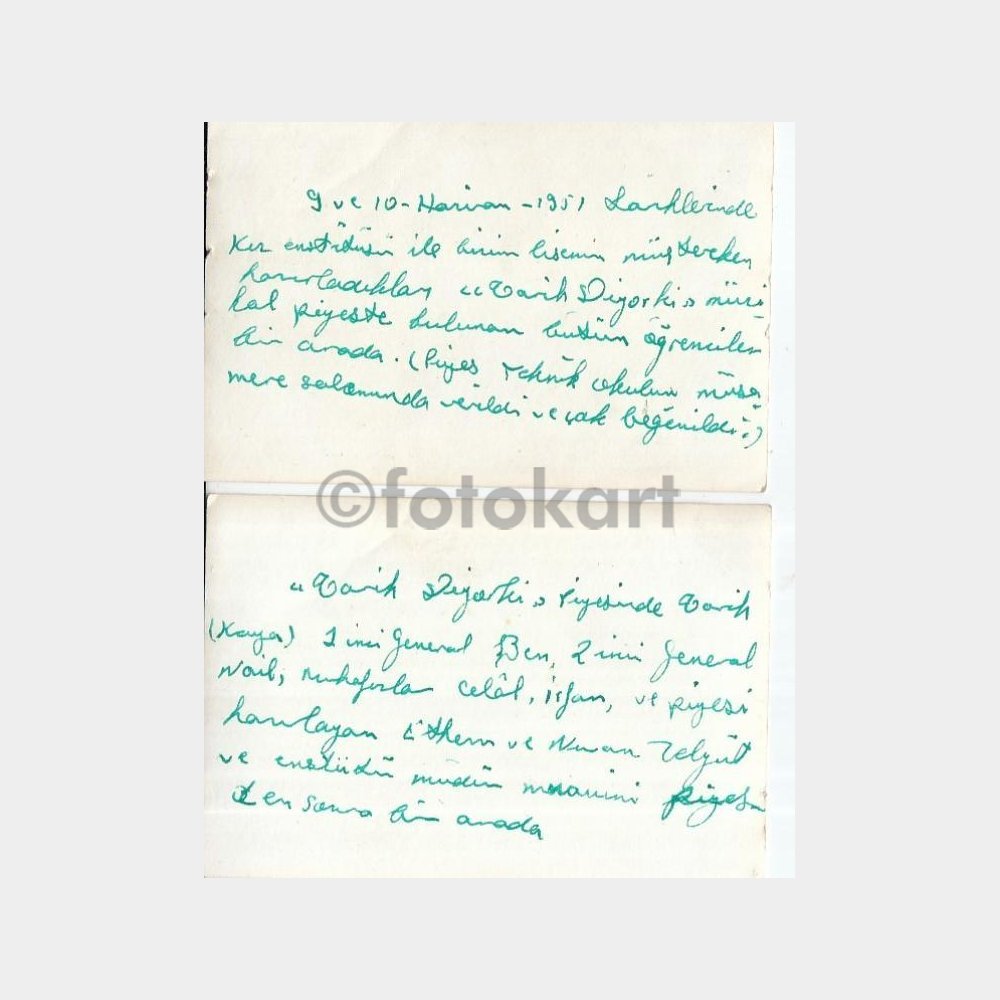 9 ve 10-Haziran-1951 tarihlerinde
Kız enstitüsü ile bizim lisenin müştereken
hazırladıkları "Tarih Diyorki" müzi
kal piyeste bulunan bütün öğrenciler
bir arada. (Piyes Teknik okulun müsa
mere salonunda verildi ve çok beğenildi.)
©fotokart
"Tarih Diyorki" Piyesinde Tarih
(Kaya) 1 inci General Ben, 2 inci General
Nail, muhafızlar Celâl, İrfan, ve piyesi
hazırlayan Ethem ve Nuran
ve enstitü müdür muavini piyes
den sonra bir arada